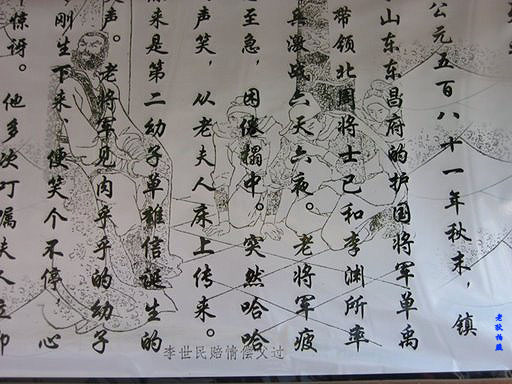 公元五百八十一年秋末，镇
山东东昌府的护国将军单禹
带领北周将士已和李渊所率
激战六天六夜。老将军疲
至急，困倦榻中。突然哈哈
声笑，从老夫人床上传来。
来是第二幼子单雄信诞生的
声。老将军见肉乎乎的幼子
刚生下来，便笑个不停，心
惊讶。他多次叮嘱夫人
李世民赔情偿父过
老狄拍摄